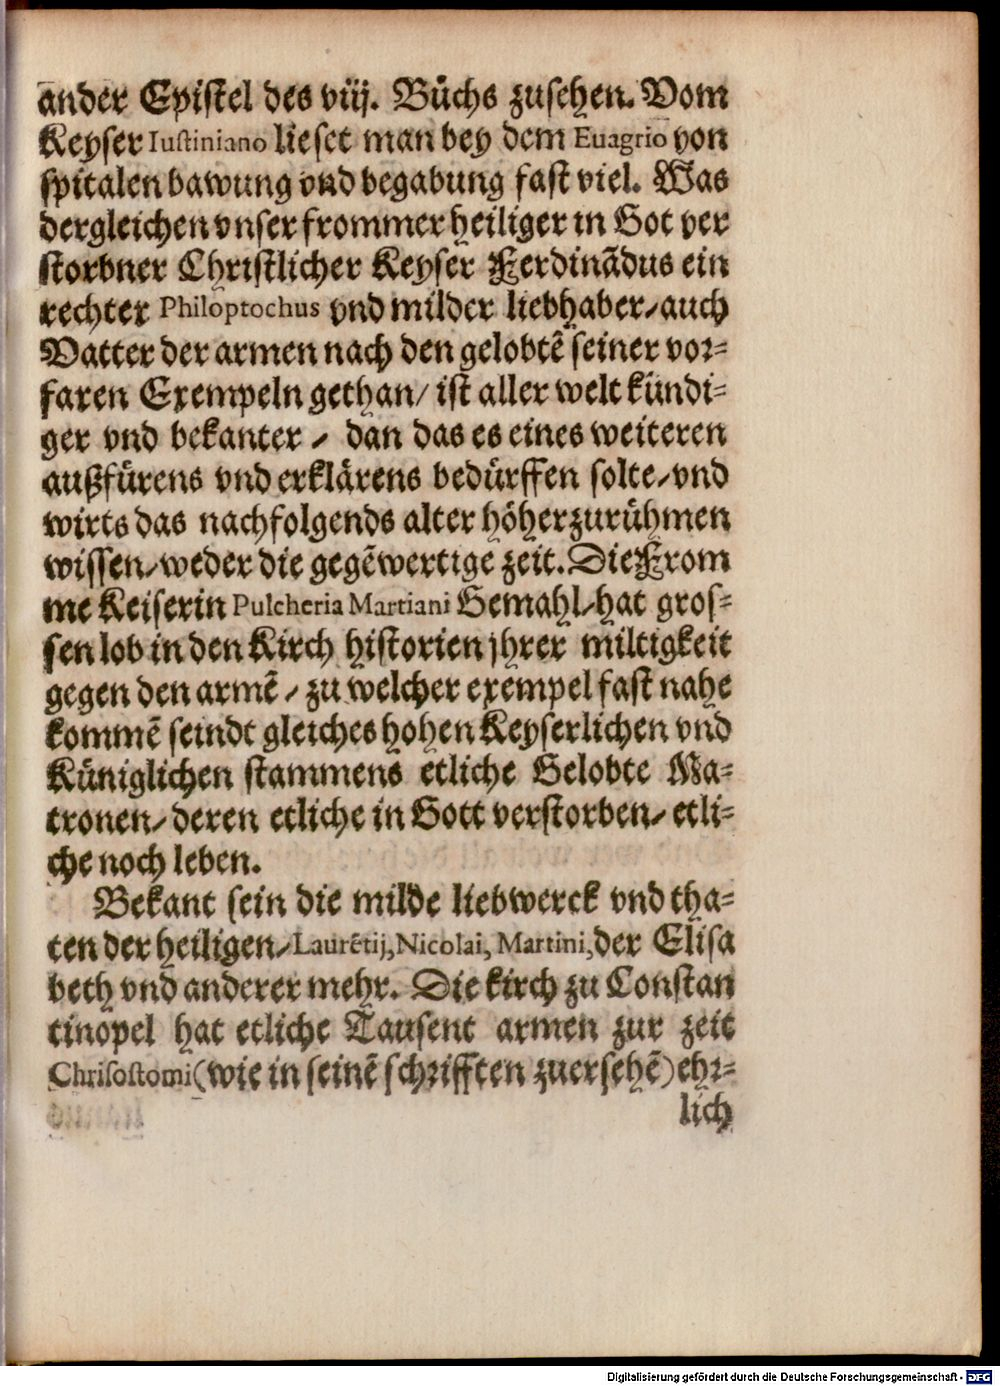 ander Epistel des viij. Bůchs zusehen. Vom
Keyser Iustiniano lieset man bey dem Euagrio von
spitalen bawung vnd begabung fast viel. Was
dergleichen vnser frommer heiliger in Got ver
storbner Christlicher Keyser Ferdinãdus ein
rechter Philoptochus vnd milder liebhaber/auch
Vatter der armen nach den gelobtẽ seiner vor⸗
faren Exempeln gethan/ ist aller welt kündi⸗
ger vnd bekanter / dan das es eines weiteren
außfürens vnd erklärens bedürffen solte/vnd
wirts das nachfolgends alter höher zurühmen
wissen/weder die gegẽwertige zeit. Die From
me Keiserin Pulcheria Martiani Gemahl/hat gros⸗
sen lob in den Kirch historien jhrer miltigkeit
gegen den armẽ / zu welcher exempel fast nahe
kommẽ seindt gleiches hohen Keyserlichen vnd
Küniglichen stammens etliche Gelobte Ma⸗
tronen/deren etliche in Gott verstorben/etli⸗
che noch leben.
Bekant sein die milde liebwerck vnd tha⸗
ten der heiligen/Laurẽtij, Nicolai, Martini, der Elisa
beth vnd anderer mehr. Die kirch zu Constan
tinopel hat etliche Tausent armen zur zeit
Chrisostomi (wie in seinẽ schrifften zuersehẽ) ehr⸗
lich
Digitalisierung gefördert durch die Deutsche Forschungsgemeinschaft - DFG